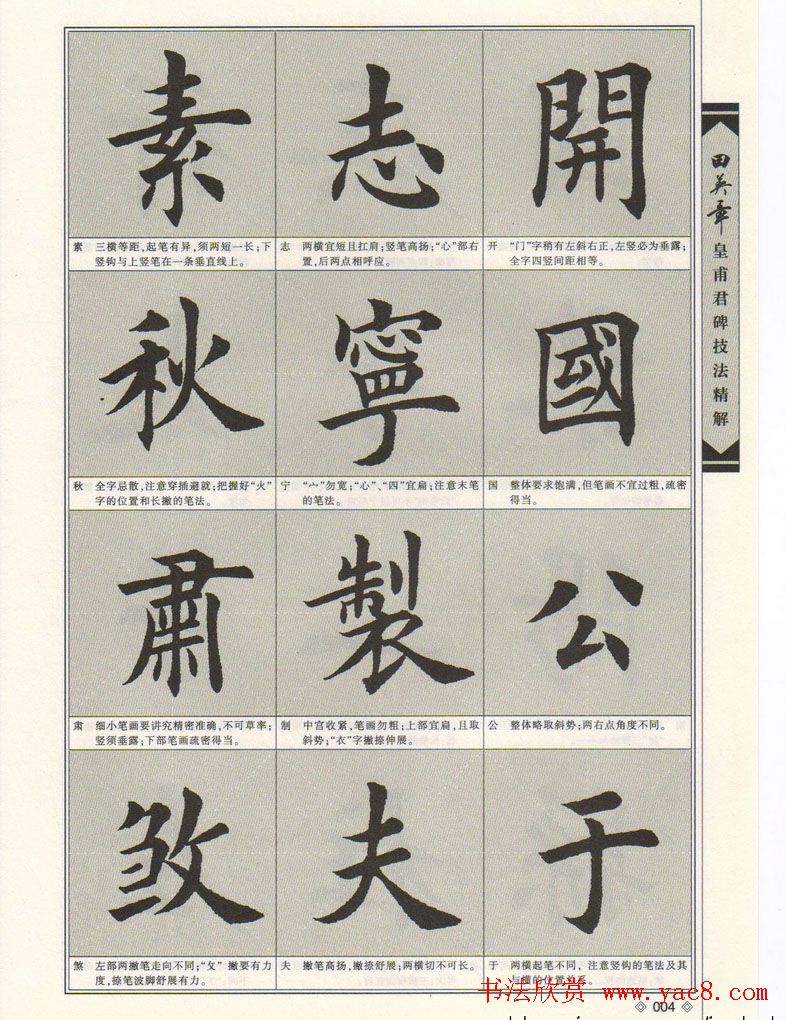 開
开 “门”字稍有左斜右正,左竖必为垂露;
全字四竖间距相等。
國
国 整体要求饱满,但笔画不宜过粗,疏密
得当。
公
公 整体略取斜势;两右点角度不同。
于
于 两横起笔不同,注意竖钩的笔法及其
与横的位置关系。
志
志 两横宜短且扛肩;竖笔高扬;“心”部右
置,后两点相呼应。
寧
宁 “宀”勿宽;“心”、“四”宜扁;注意末笔
的笔法。
製
制 中宫收紧,笔画勿粗;上部宜扁,且取
斜势;“衣”字撇捺伸展。
夫
夫 撇笔高扬,撇捺舒展;两横切不可长。
素
素 三横等距,起笔有异,须两短一长;下
竖钩与上竖笔在一条垂直线上。
秋
秋 全字忌散,注意穿插避就;把握好“火”
字的位置和长撇的笔法。
肅
肃 细小笔画要讲究精密准确,不可草率;
竖须垂露;下部笔画疏密得当。
煞 左部两撇笔走向不同;“攵”撇要有力
度,捺笔波脚舒展有力。
田英章
皇甫君碑技法精解
书法欣赏 www.yac8.com
004